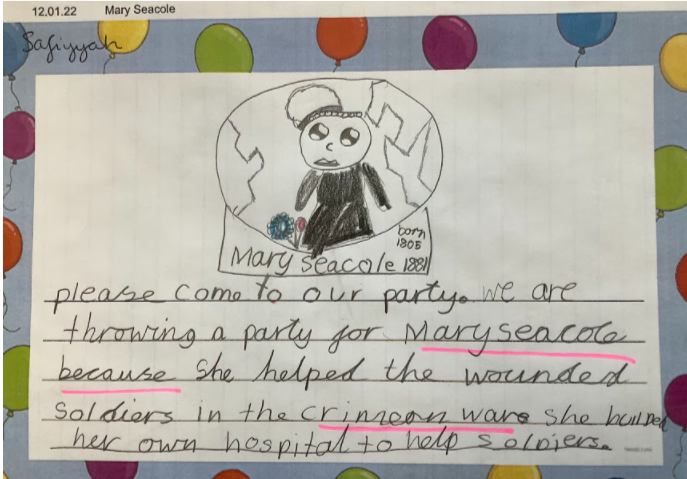 12.01.22 Mary Seacole
Safiyyah
born
1805
Mary Seacole 1881
please come to our party. we are
throwing a party for Mary seacole
because she helped the wounded
soldiers in the crimean war. she builded
her own hospital to help soldiers.